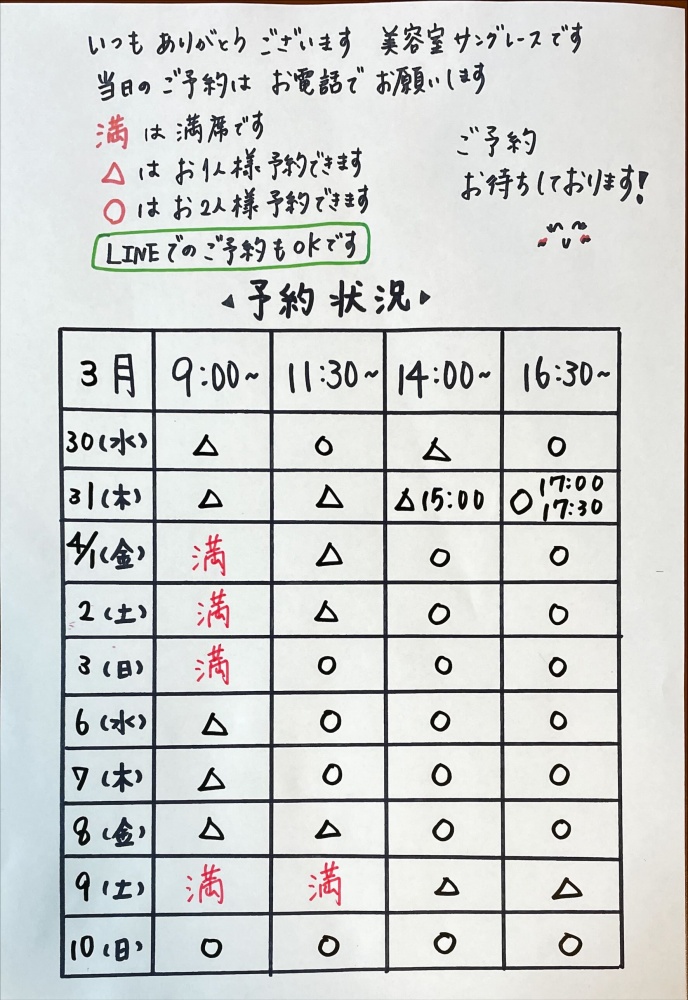 いつも ありがとう ございます 美容室 サングレースです
当日の ご予約は お電話で お願いします
満 は 満席です
△ は お1人様 予約できます
○ は お2人様 予約できます
LINEでの ご予約も OKです
ご予約
お待ちしております!
◀ 予約 状況 ▶
3月 9:00~ 11:30~ 14:00~ 16:30~
30(水) △ ○ △ ○
31(木) △ △ △15:00 ○17:00 17:30
4/1(金) 満 △ ○ ○
2(土) 満 △ ○ ○
3(日) 満 ○ ○ ○
6(水) △ ○ ○ ○
7(木) △ ○ ○ ○
8(金) △ △ ○ ○
9(土) 満 満 △ △
10(日) ○ ○ ○ ○